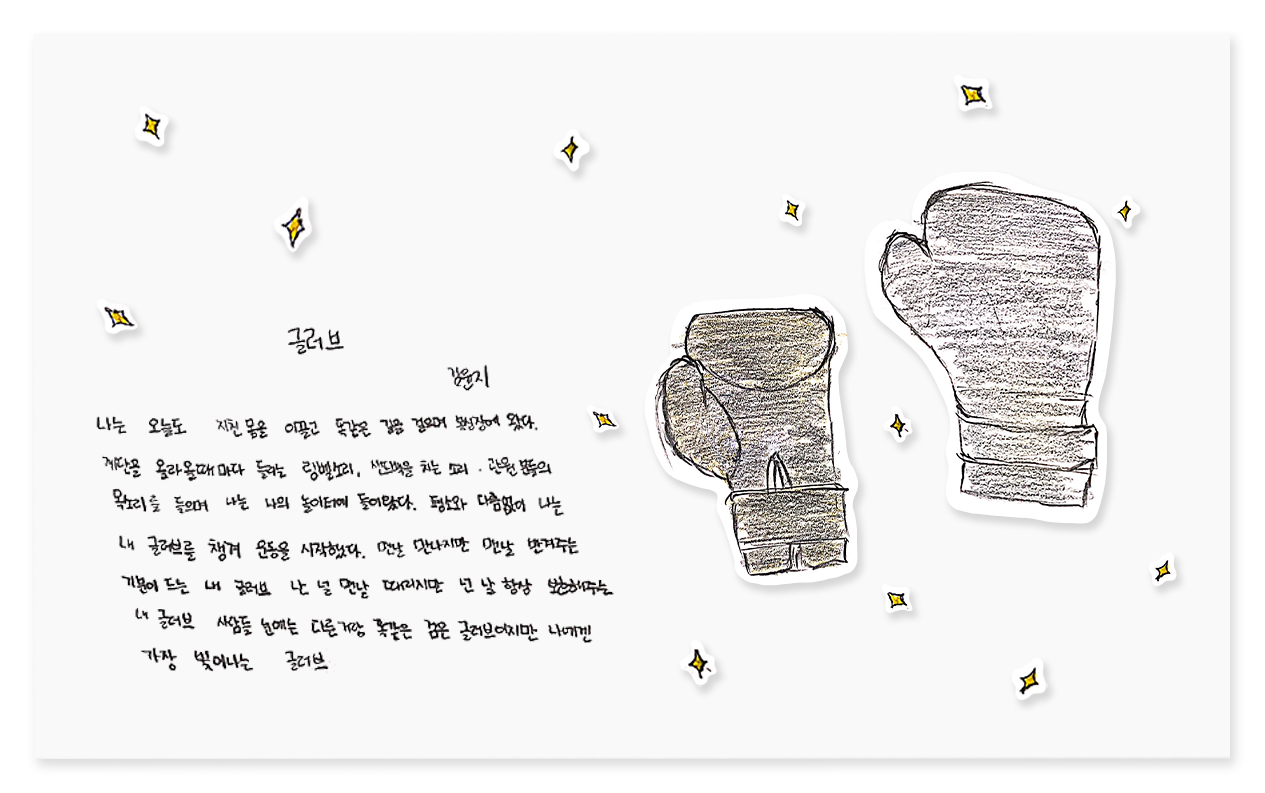 글러브
김윤지
나는 오늘도 지친 몸을 이끌고 똑같은 길을 걸으며 복싱장에 왔다.
계단을 올라올때마다 들리는 링벨소리, 샌드백을 치는 소리 · 관원분들의
목소리를 들으며 나는 나의 놀이터에 들어왔다. 평소와 다름없이 나는
내 글러브를 챙겨 운동을 시작했다. 맨날 만나지만 맨날 반겨주는
기분이 드는 내 글러브 난 널 맨날 때리지만 넌 날 항상 보호해주는
내 글러브 사람들 눈에는 다른거랑 똑같은 검은 글러브이지만 나에겐
가장 빛이나는 글러브